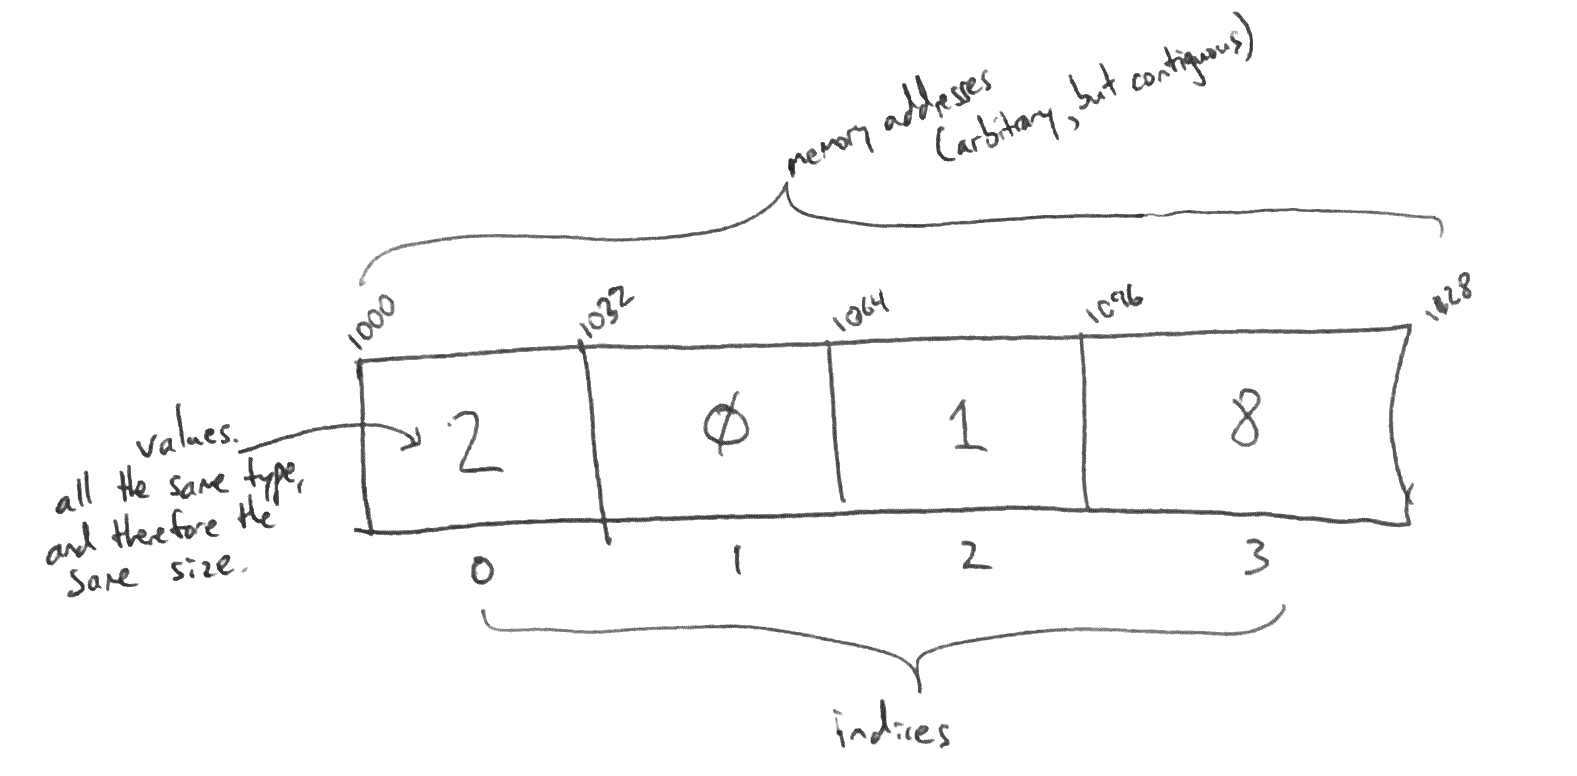 memory addresses
(arbitrary, but contiguous)
1000 1032 1064 1096 1128
values.
all the same type,
and therefore the
same size.
2 0 1 8
0 1 2 3
indices